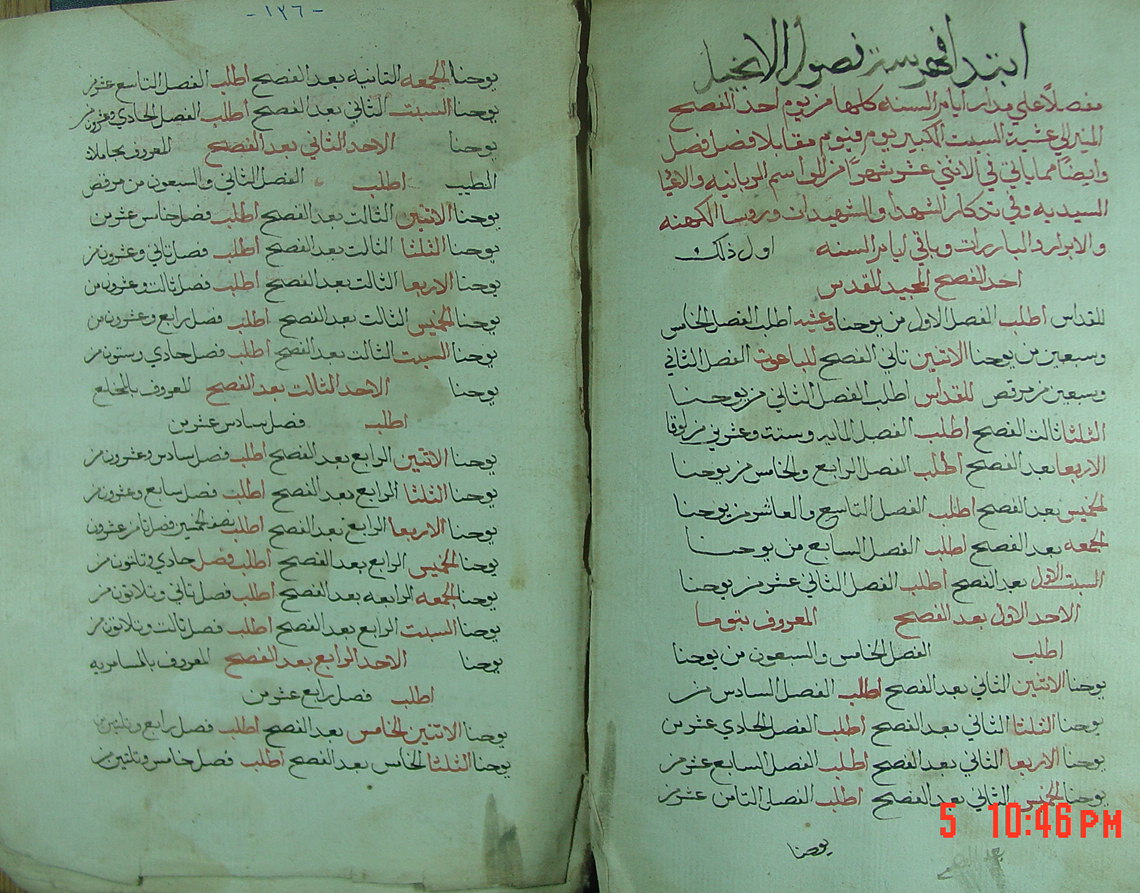 ابتدا فهرسة فصول الانجيل
مفصلاً علي مدار ايام السنه كلها من يوم احد الفصح
الي عشية السبت الكبير يوم فيوم مقابلا فصل فصل
وايضا مما ياتي في الاثني عشر شهراً من المواسم الربانيه والاعيا
السيديه وفي تذكار الشهدا والشهيدات وروسا الكهنه
والابرار والبارات وباقي ايام السنه اول ذلك
احد الفصح المجيد المقدس
للقداس اطلب الفصل الاول من يوحنا وعشيه اطلب الفصل الخامس
وسبعين من يوحنا الاثنين تاني الفصح للباعوت الفصل الثاني
وسبعين من مرقص للقداس اطلب الفصل الثاني من يوحنا
الثلثا ثالت الفصح اطلب الفصل المايه وستت وعشرين من لوقا
الاربعا بعد الفصح اطلب الفصل الرابع والخامس من يوحنا
الخميس بعد الفصح اطلب الفصل التاسع والعاشر من يوحنا
الجمعه بعد الفصح اطلب الفصل السابع من يوحنا
السبت الاول بعد الفصح اطلب الفصل الثاني عشر من يوحنا
الاحد الاول بعد الفصح المعروف بتوما
اطلب الفصل الخامس والسبعون من يوحنا
يوحنا الاثنين الثاني بعد الفصح اطلب الفصل السادس من
يوحنا الثلثا الثاني بعد الفصح اطلب الفصل الحادي عشر من
يوحنا الاربعا الثاني بعد الفصح اطلب الفصل السابع عشر من
يوحنا الخميس الثاني بعد الفصح اطلب الفصل الثامن عشر من
يوحنا
5 10:46 PM
-١٢٦-
يوحنا الجمعه الثانيه بعد الفصح اطلب الفصل التاسع عشر من
يوحنا السبت الثاني بعد الفصح اطلب الفصل الحادي وعشرون من
يوحنا الاحد الثاني بعد الفصح المعروف بحاملات
الطيب اطلب الفصل الثاني والسبعون من مرقص
يوحنا الاثنين الثالت بعد الفصح اطلب فصل خامس عشر من
يوحنا الثلثا الثالت بعد الفصح اطلب فصل ثاني وعشرون من
يوحنا الاربعا الثالت بعد الفصح اطلب فصل ثالت وعشرون من
يوحنا الخميس الثالت بعد الفصح اطلب فصل رابع وعشرون من
يوحنا السبت الثالت بعد الفصح اطلب فصل حادي وستون من
يوحنا الاحد الثالت بعد الفصح المعروف بالمخلع
اطلب فصل سادس عشر من
يوحنا الاثنين الرابع بعد الفصح اطلب فصل سادس وعشرون من
يوحنا الثلثا الرابع بعد الفصح اطلب فصل سابع وعشرون من
يوحنا الاربعا الرابع بعد الفصح اطلب نصف الخمسين فصل ثامن عشرون
يوحنا الخميس الرابع بعد الفصح اطلب فصل حادي وثلثون من
يوحنا الجمعه الرابعه بعد الفصح اطلب فصل ثاني وثلاثون من
يوحنا السبت الرابع بعد الفصح اطلب فصل ثالت وثلاثون من
يوحنا الاحد الرابع بعد الفصح المعروف بالسامريه
اطلب فصل رابع عشر من
يوحنا الاثنين الخامس بعد الفصح اطلب فصل رابع وثلثين من
يوحنا الثلثا الخامس بعد الفصح اطلب فصل خامس وثلثين من